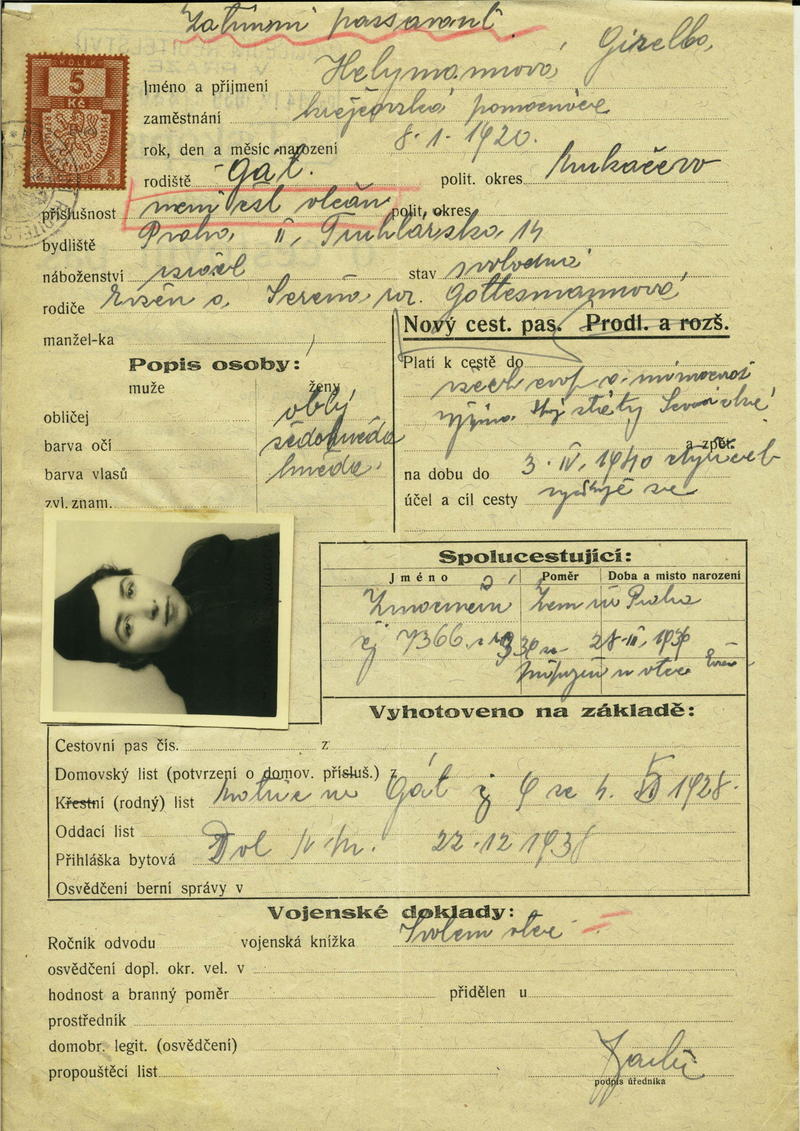 Zatímní passavant
KOLEK
5
Kč
Jméno a příjmení Helymannová Gizella,
zaměstnání krejčovská pomocnice
rok, den a měsíc narození 8.1.1920.
rodiště Gát. polit. okres Mukačevo
příslušnost není čsl občan polit. okres
bydliště Praha II, Truhlářská 14
náboženství izrael stav svobodná
rodiče Evžen a Serena, roz. Gottesmannová
manžel-ka
Nový cest. pas. Prodl. a rozš.
Popis osoby:
muže ženy
Platí k cestě do všech evrop a mimoevrop
státy
obličej oblý
barva očí šedohnědá
a zpět.
barva vlasů hnědá
na dobu do 3.IV.1940
zvl. znam.
účel a cíl cesty
Spolucestující:
Jméno Poměr Doba a místo narození
Zmocnění Zem úř Praha
čj 7366
28.III.1939
Vyhotoveno na základě:
Cestovní pas čís. z
Domovský list (potvrzení o domov. přísluš.) z
Křestní (rodný) list Gát čj 9 ze 1928.
Oddací list
Přihláška bytová 22.12.1938
Osvědčení berní správy v
Vojenské doklady:
Ročník odvodu vojenská knížka Svolení otce
osvědčení dopl. okr. vel. v
hodnost a branný poměr přidělen u
prostředník
domobr. legit. (osvědčení)
propouštěcí list
podpis úředníka